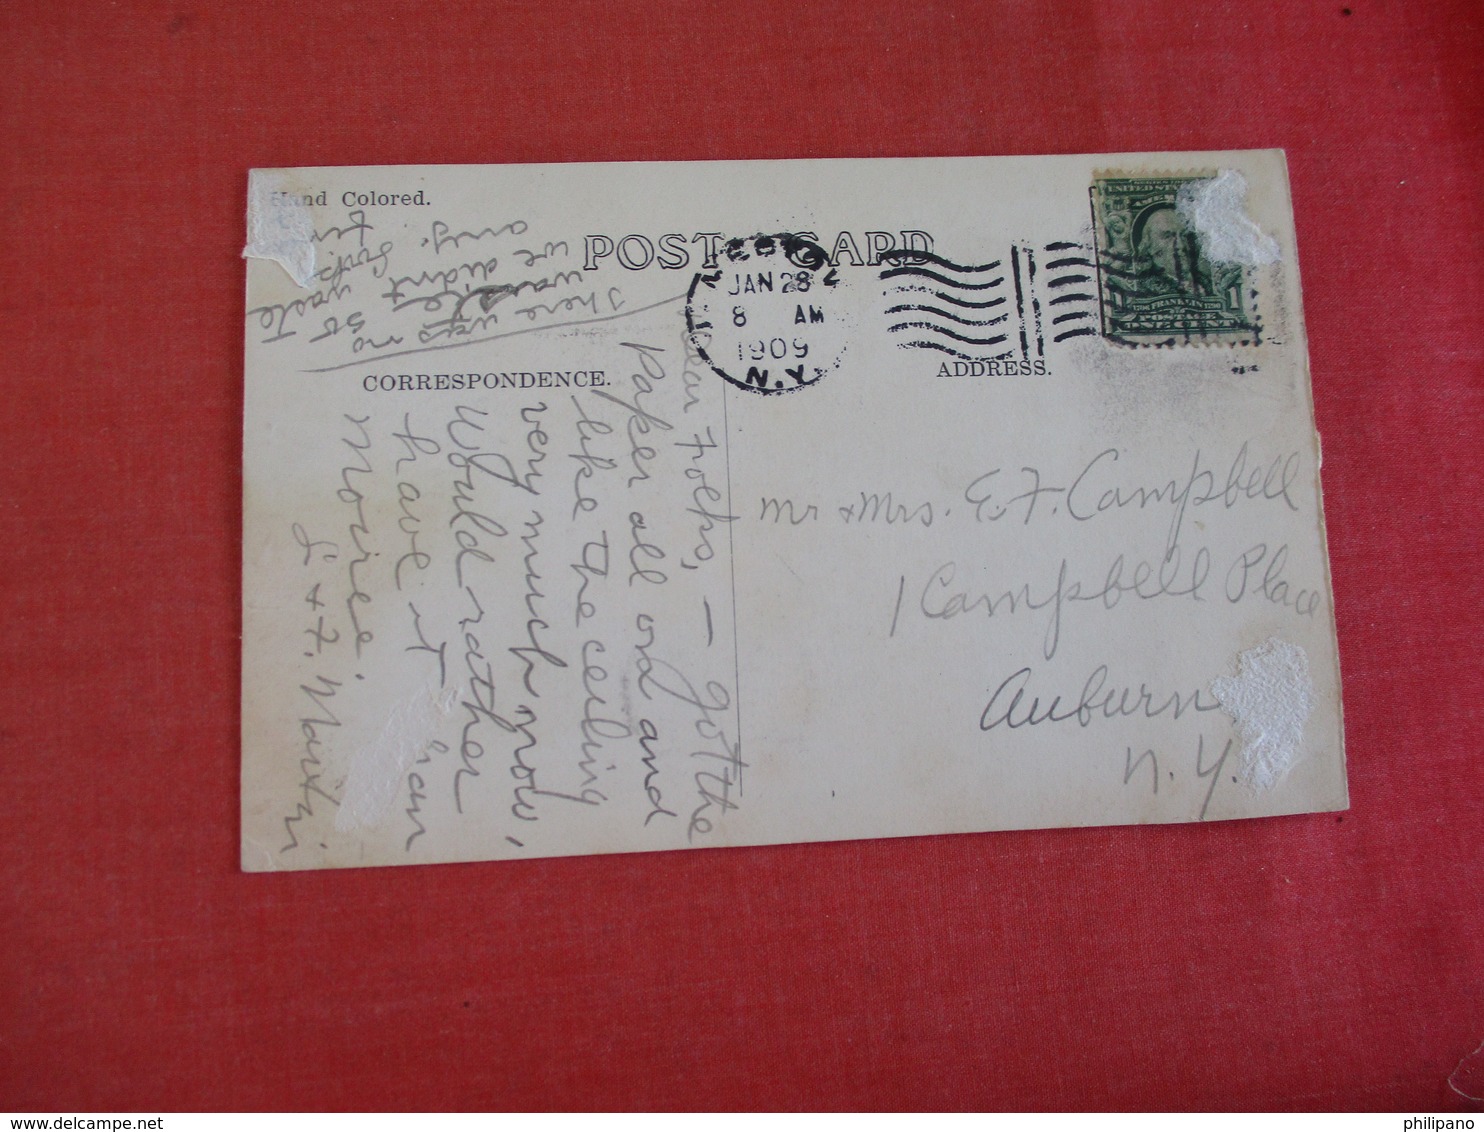 Hand Colored.
POST CARD
CORRESPONDENCE.
ADDRESS.
JAN 28
8 AM
1909
N.Y.
UNITED STATES
FRANKLIN
1
POSTAGE
ONE CENT
Dear Folks, — got the
Paper all ord and
like the ceiling
very much now,
Would rather
have it than
Moire.
L & F.
There was no
waste so
we didn't
any.
Mr & Mrs. E. F. Campbell
1 Campbell Place
Auburn
N.Y.
philipano